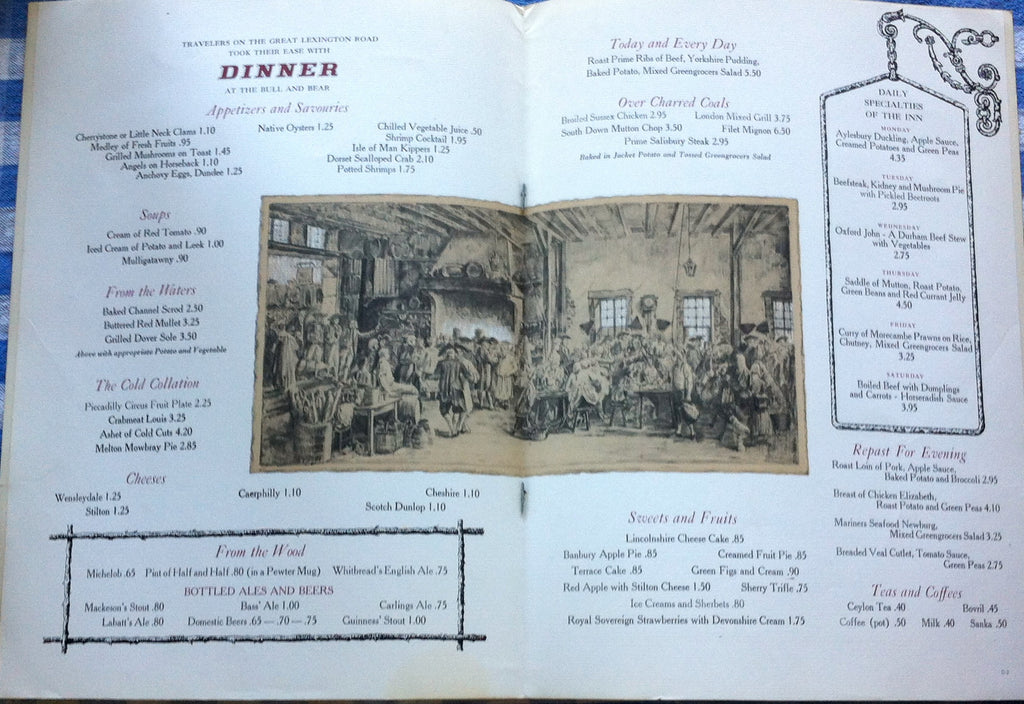 TRAVELERS ON THE GREAT LEXINGTON ROAD
TOOK THEIR EASE WITH
DINNER
AT THE BULL AND BEAR
Appetizers and Savouries
Cherrystone or Little Neck Clams 1.10
Medley of Fresh Fruits .95
Grilled Mushrooms on Toast 1.45
Angels on Horseback 1.10
Anchovy Eggs, Dundee 1.25
Native Oysters 1.25
Chilled Vegetable Juice .50
Shrimp Cocktail 1.95
Isle of Man Kippers 1.25
Dorset Scalloped Crab 2.10
Potted Shrimps 1.75
Soups
Cream of Red Tomato .90
Iced Cream of Potato and Leek 1.00
Mulligatawny .90
From the Waters
Baked Channel Scrod 2.50
Buttered Red Mullet 3.25
Grilled Dover Sole 3.50
Above with appropriate Potato and Vegetable
The Cold Collation
Piccadilly Circus Fruit Plate 2.25
Crabmeat Louis 3.25
Ashet of Cold Cuts 4.20
Melton Mowbray Pie 2.85
Cheeses
Wensleydale 1.25
Stilton 1.25
Caerphilly 1.10
Cheshire 1.10
Scotch Dunlop 1.10
From the Wood
Michelob .65 Pint of Half and Half .80 (in a Pewter Mug) Whitbread's English Ale .75
BOTTLED ALES AND BEERS
Mackeson's Stout .80 Bass' Ale 1.00 Carlings Ale .75
Labatt's Ale .80 Domestic Beers .65 — .70 — .75 Guinness' Stout 1.00
Today and Every Day
Roast Prime Ribs of Beef, Yorkshire Pudding,
Baked Potato, Mixed Greengrocers Salad 5.50
Over Charred Coals
Broiled Sussex Chicken 2.95 London Mixed Grill 3.75
South Down Mutton Chop 3.50 Filet Mignon 6.50
Prime Salisbury Steak 2.95
Baked in Jacket Potato and Tossed Greengrocers Salad
Sweets and Fruits
Lincolnshire Cheese Cake .85
Banbury Apple Pie .85 Creamed Fruit Pie .85
Terrace Cake .85 Green Figs and Cream .90
Red Apple with Stilton Cheese 1.50 Sherry Trifle .75
Ice Creams and Sherbets .80
Royal Sovereign Strawberries with Devonshire Cream 1.75
DAILY
SPECIALTIES
OF THE INN
MONDAY
Aylesbury Duckling, Apple Sauce,
Creamed Potatoes and Green Peas
4.35
TUESDAY
Beefsteak, Kidney and Mushroom Pie
with Pickled Beetroots
2.95
WEDNESDAY
Oxford John - A Durham Beef Stew
with Vegetables
2.75
THURSDAY
Saddle of Mutton, Roast Potato,
Green Beans and Red Currant Jelly
4.50
FRIDAY
Curry of Morecambe Prawns on Rice,
Chutney, Mixed Greengrocers Salad
3.25
SATURDAY
Boiled Beef with Dumplings
and Carrots - Horseradish Sauce
3.95
Repast For Evening
Roast Loin of Pork, Apple Sauce,
Baked Potato and Broccoli 2.95
Breast of Chicken Elizabeth,
Roast Potato and Green Peas 4.10
Mariners Seafood Newburg,
Mixed Greengrocers Salad 3.25
Breaded Veal Cutlet, Tomato Sauce,
Green Peas 2.75
Teas and Coffees
Ceylon Tea .40 Bovril .45
Coffee (pot) .50 Milk .40 Sanka .50